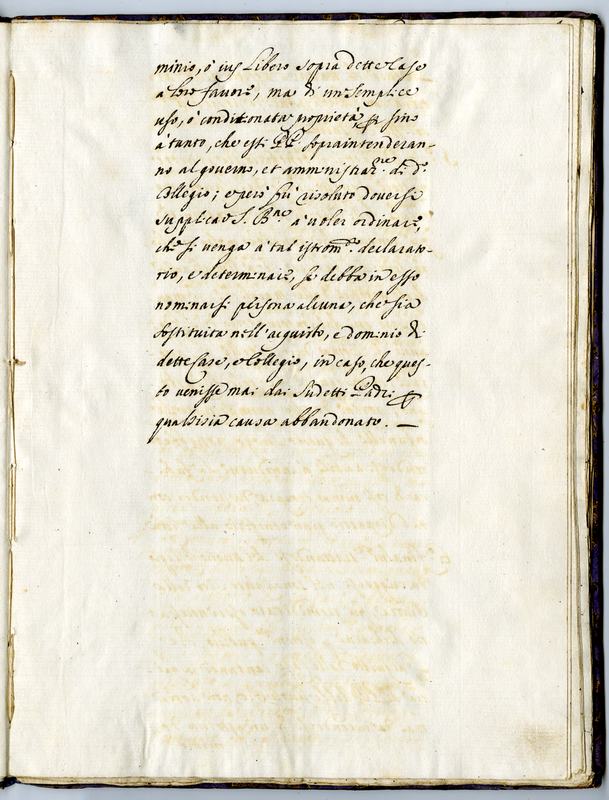 minio, ò ius Libero sopra dette Case
a loro favore, ma di un semplice
uso, ò conditionata proprietà, per sino
à tanto, che essi PP. sopraintenderan-
no al governo, et amministraz.ne di d.o
Collegio; e però fù risoluto doversi
supplicare S. B.ne à voler ordinare,
che si venga à tal istrom.to declarato-
rio, e determinare, se debba in esso
nominarsi persona alcuna, che sia
sostituita nell'acquisto, e dominio di
dette Case, e Collegio, in caso, che ques-
to venisse mai dai sudetti Padri per
qualsisia causa abbandonato. —